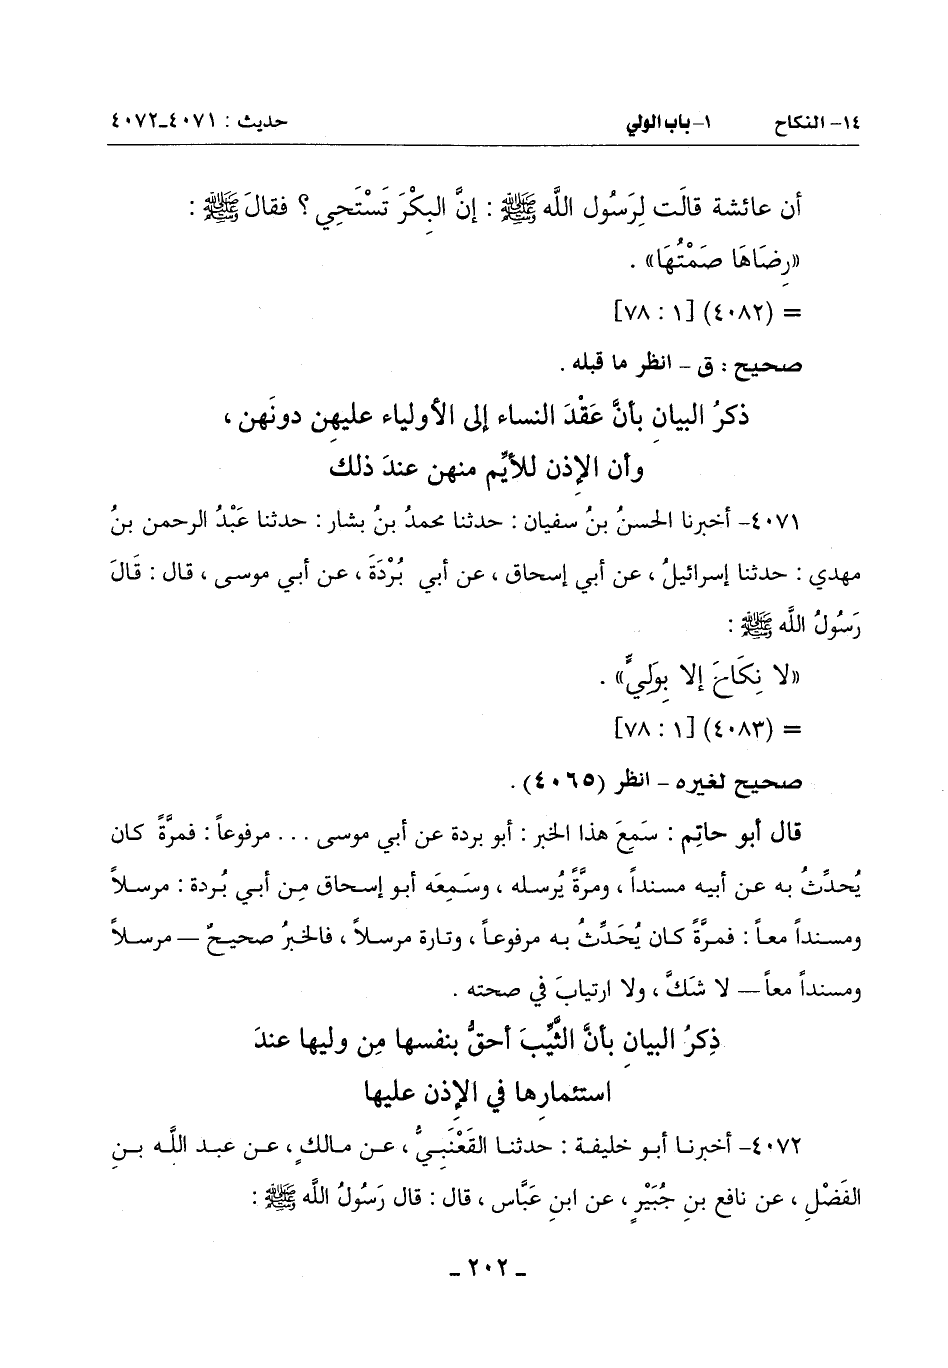 ١٤- النكاح ١- باب الولي حديث : ٤٠٧١-٤٠٧٢
أن عائشة قالَت لِرَسُول اللَّه ﷺ : إنَّ البِكْرَ تَسْتَحِي ؟ فقالَ ﷺ :
«رِضَاهَا صَمْتُهَا» .
= (٤٠٨٢) [١ : ٧٨]
صحيح : ق - انظر ما قبله .
ذكرُ البيانِ بأنَّ عَقْدَ النساء إلى الأولياء عليهِن دونَهن ،
وأن الإذن للأيِّمِ منهن عندَ ذلك
٤٠٧١- أخبرنا الحسنُ بنُ سفيان : حدثنا محمدُ بنُ بشار : حدثنا عَبْدُ الرحمن بنُ
مهدي : حدثنا إسرائيلُ ، عن أبي إسحاق ، عن أبي بُرْدَةَ ، عن أبي موسى ، قال : قَالَ
رَسُولُ اللَّه ﷺ :
«لا نِكَاحَ إلا بِوَلِيٍّ» .
= (٤٠٨٣) [١ : ٧٨]
صحيح لغيره - انظر (٤٠٦٥) .
قال أبو حاتِم : سَمِعَ هذا الخبر : أبو بردة عن أبي موسى . . . مرفوعاً : فمرَّةً كان
يُحدِّثُ به عن أبيه مسنداً ، ومرَّةً يُرسله ، وسَمِعَه أبو إسحاق مِن أبي بُردة : مرسلاً
ومسنداً معاً : فمرَّةً كان يُحَدِّثُ به مرفوعاً ، وتارة مرسلاً ، فالخبرُ صحيحٌ — مرسلاً
ومسنداً معاً — لا شَكَّ ، ولا ارتيابَ في صحته .
ذِكرُ البيانِ بأنَّ الثَّيِّبَ أحقُّ بنفسها مِن وليها عندَ
استئمارِها في الإذن عليها
٤٠٧٢- أخبرنا أبو خليفة : حدثنا القَعْنَبِيُّ ، عن مالكٍ ، عن عبد اللَّه بنِ
الفَضْلِ ، عن نافع بنِ جُبَيْرٍ ، عن ابنِ عَبَّاس ، قال : قال رَسُولُ اللَّه ﷺ :
- ٢٠٢ -